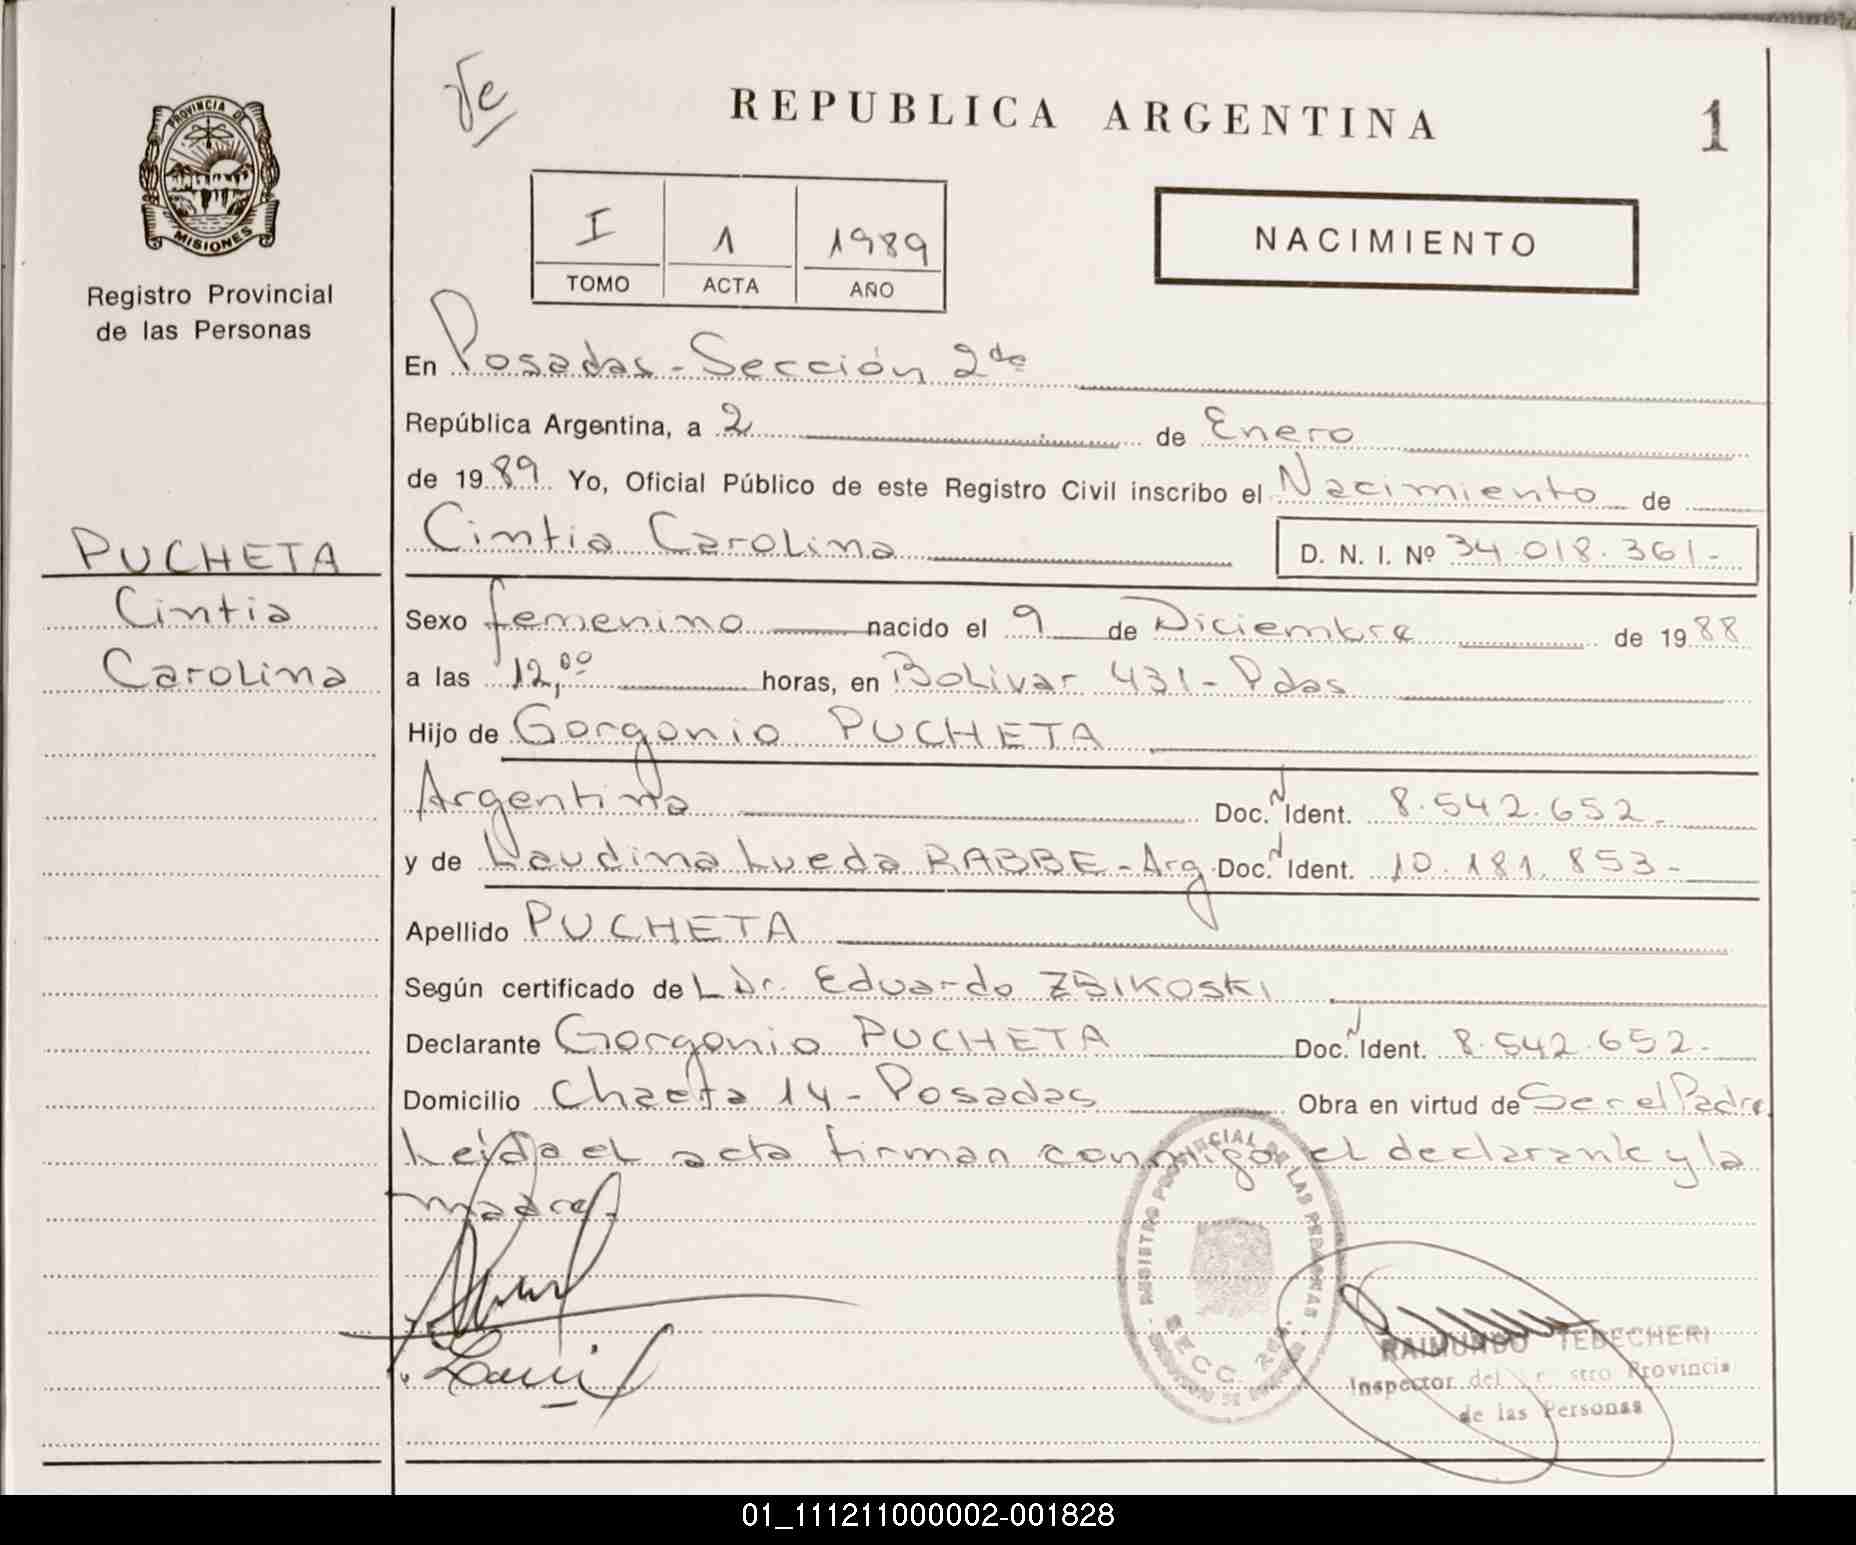 REPUBLICA ARGENTINA
1
PROVINCIA DE
MISIONES
Registro Provincial
de las Personas
I 1 1989
TOMO ACTA AÑO
NACIMIENTO
En Posadas - Sección 2da
República Argentina, a 2 de Enero
de 1989 Yo, Oficial Público de este Registro Civil inscribo el Nacimiento de
Cintia Carolina D. N. I. Nº 34.018.361-
PUCHETA
Cintia
Carolina
Sexo femenino nacido el 9 de Diciembre de 1988
a las 12,00 horas, en Bolivar 431 - Pdas
Hijo de Gorgonio PUCHETA
Argentino Doc. Ident. 8.542.652-
y de Laudina Lueda RABBE - Arg. Doc. Ident. 10.181.853-
Apellido PUCHETA
Según certificado de L Dr. Eduardo ZBIKOSKI
Declarante Gorgonio PUCHETA Doc. Ident. 8.542.652-
Domicilio Chacra 14 - Posadas Obra en virtud de Ser el Padre
Leída el acta firman conmigo el declarante y la
madre.
REGISTRO PROVINCIAL DE LAS PERSONAS
SECC. 2da.
RAIMUNDO TEDECHERI
Inspector del Provincia
de las Personas
01_111211000002-001828